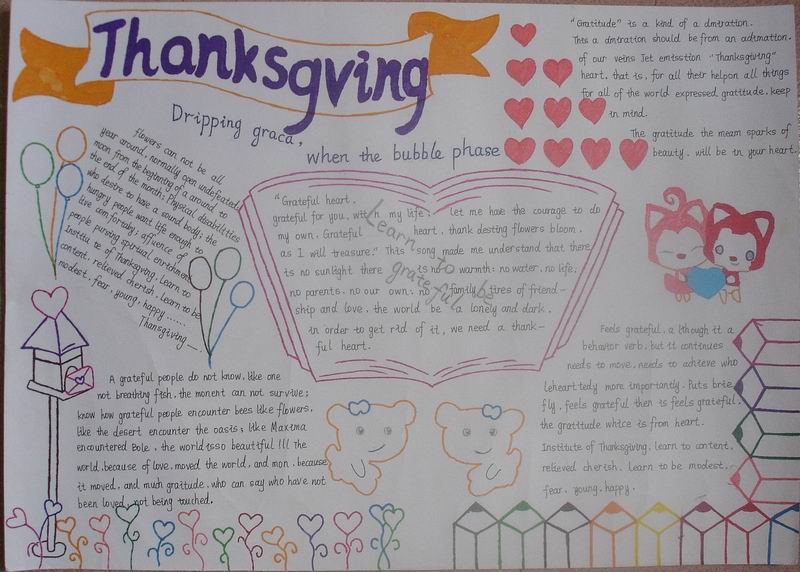 Thanksgving
Dripping graca,
when the bubble phase
"Gratitude" is a kind of a dmtration.
This a dmtration should be from an adtmation.
of our veins Jet emtsstion "Thanksgiving"
heart, that is, for all their helpon all things
for all of the world expressed gratitude, keep
in mind.
The gratitude the meam sparks of
beauty, will be in your heart.
flowers can not be all
year around, normally open undefeated
moon from the beginning of a around to
the end of the month; Physical disabilities
who destre to have a sound body; the
hungry people want life enough to
live comfortably; affience of
people pursing spiritual enrichment
Institu te of Thanksgiving, Learn to
content, relieved cherish, Learn to be
modest, fear, young, happy......
Thansgiving—.
"Grateful heart,
grateful for you, with in my life, let me have the courage to do
my own. Grateful heart, thank desting flowers bloom,
as I will treasure." This song made me understand that there
is no sunlight there is no warmth; no water, no life;
no parents, no our own; no family, tires of friend-
ship and love, the world be a lonely and dark,
in order to get rid of it, we need a thank-
ful heart.
Learn to be
grateful
A grateful people do not know, like one
not breathing fish, the monent can not survive;
know how grateful people encounter bees like flowers,
like the desert encounter the oasis; like Maxima
encountered Bole, the world isso beautiful !!! The
world, because of love, moved the world, and mon, because
it moved, and much graitude, who can say who have not
been loved, not being touched.
Feels grateful, a lthough it a
behavior verb, but it continues
needs to move, needs to achieve who
leheart tedy more importantly. Puts brie
fly, feels grateful then is feels grateful,
the gratitude whice is from heart.
Institute of Thanksgiving, learn to content,
relieved cherish. Learn to be modest,
fear, young, happy.